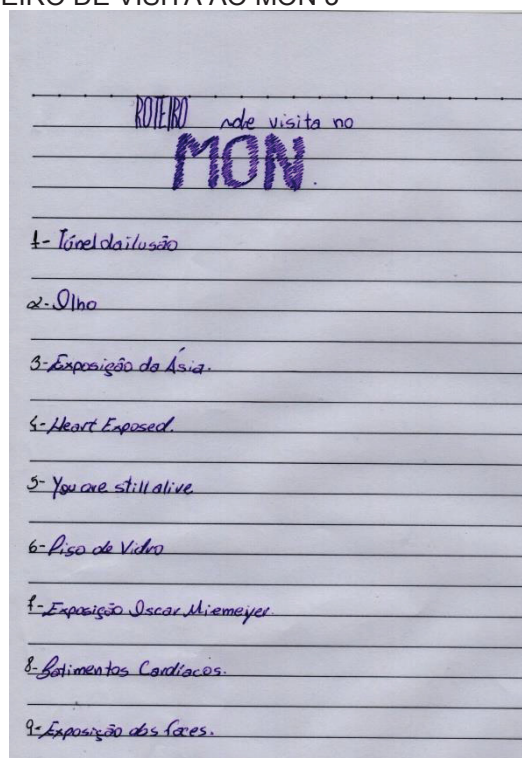 EIRO DE VISITA AO MON 3
ROTEIRO de visita no
MON.
1- Túnel da ilusão
2- Olho
3- Exposição da Ásia.
4- Heart Exposed.
5- You are still alive
6- Piso de Vidro
7- Exposição Oscar Niemeyer.
8- Batimentos Cardíacos.
9- Exposição das faces.